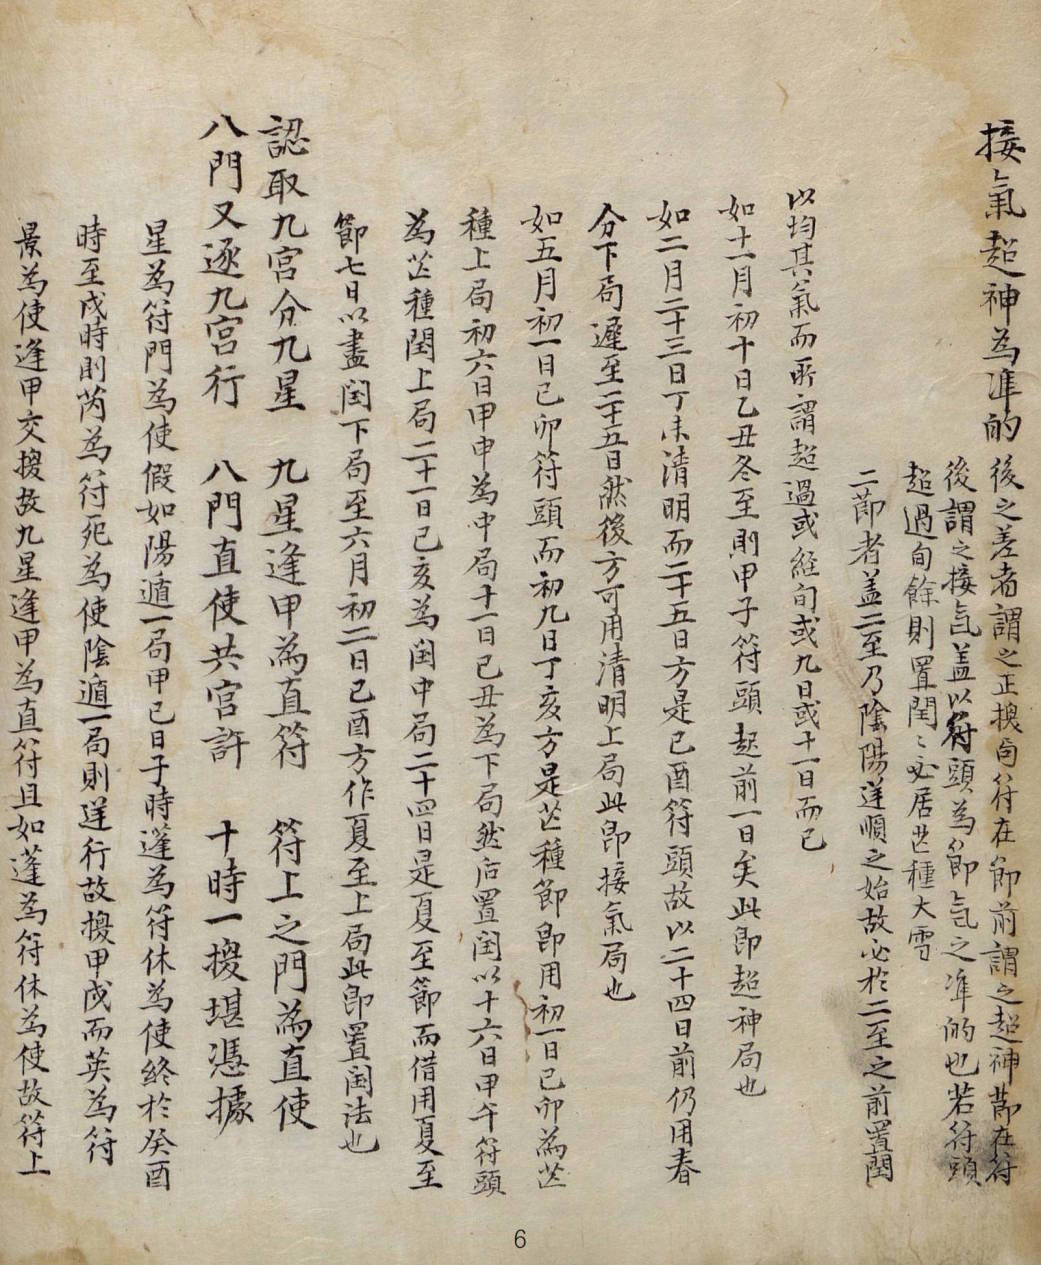 接氣超神為準的 後之差者謂之正授旬符在節前謂之超神節在符
後謂之接気盖以符頭為節気之準的也若符頭
超過旬餘則置閏〻必居芒種大雪
二節者盖二至乃陰陽逆順之始故必於二至之前置閏
以均其氣而所謂超過或經旬或九日或十一日而已
如十一月初十日乙丑冬至則甲子符頭起前一日矣此即超神局也
如二月二十三日丁未清明而二十五日方是己酉符頭故以二十四日前仍用春
分下局遲至二十五日然後方可用清明上局此即接氣局也
如五月初一日己卯符頭而初九日丁亥方是芒種節即用初一日己卯為芒
種上局初六日甲申為中局十一日己丑為下局然后置閏以十六日甲午符頭
為芒種閏上局二十一日己亥為閏中局二十四日是夏至節而借用夏至
節七日以盡閏下局至六月初二日己酉方作夏至上局此即置閏法也
認取九宮分九星 九星逢甲為直符 符上之門為直使
八門又逐九宮行 八門直使共宮許 十時一授堪憑據
星為符門為使假如陽遁一局甲己日子時蓬為符休為使終於癸酉
時至戌時則芮為符死為使陰遁一局則逆行故授甲戌而英為符
景為使逢甲交授故九星逢甲為直符且如蓬為符休為使故符上
6